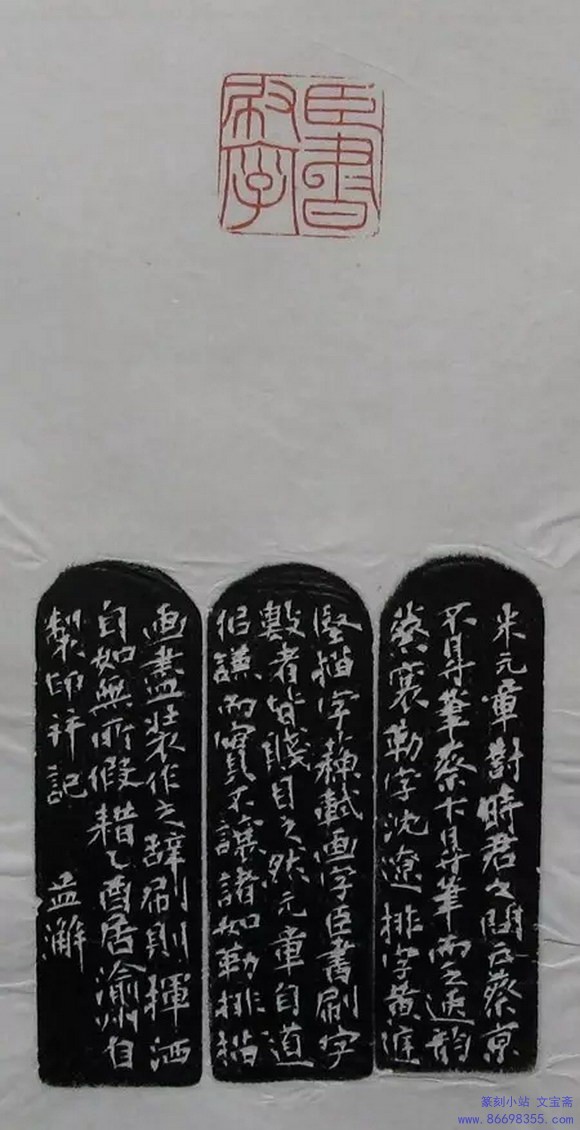 臣書
刷字
米元章對時君之問云蔡京
不得筆蔡卞得筆而乏逸韻
蔡襄勒字沈遼排字黃庭
堅描字蘇軾画字臣書刷字
數者皆賤目之然元章自道
佀謙而實不讓諸如勒排描
画盡裝作之辭刷則揮洒
自如無所假耤乙酉居渝州自
製印并記
篆刻小站 文宝斋
www.86698355.com